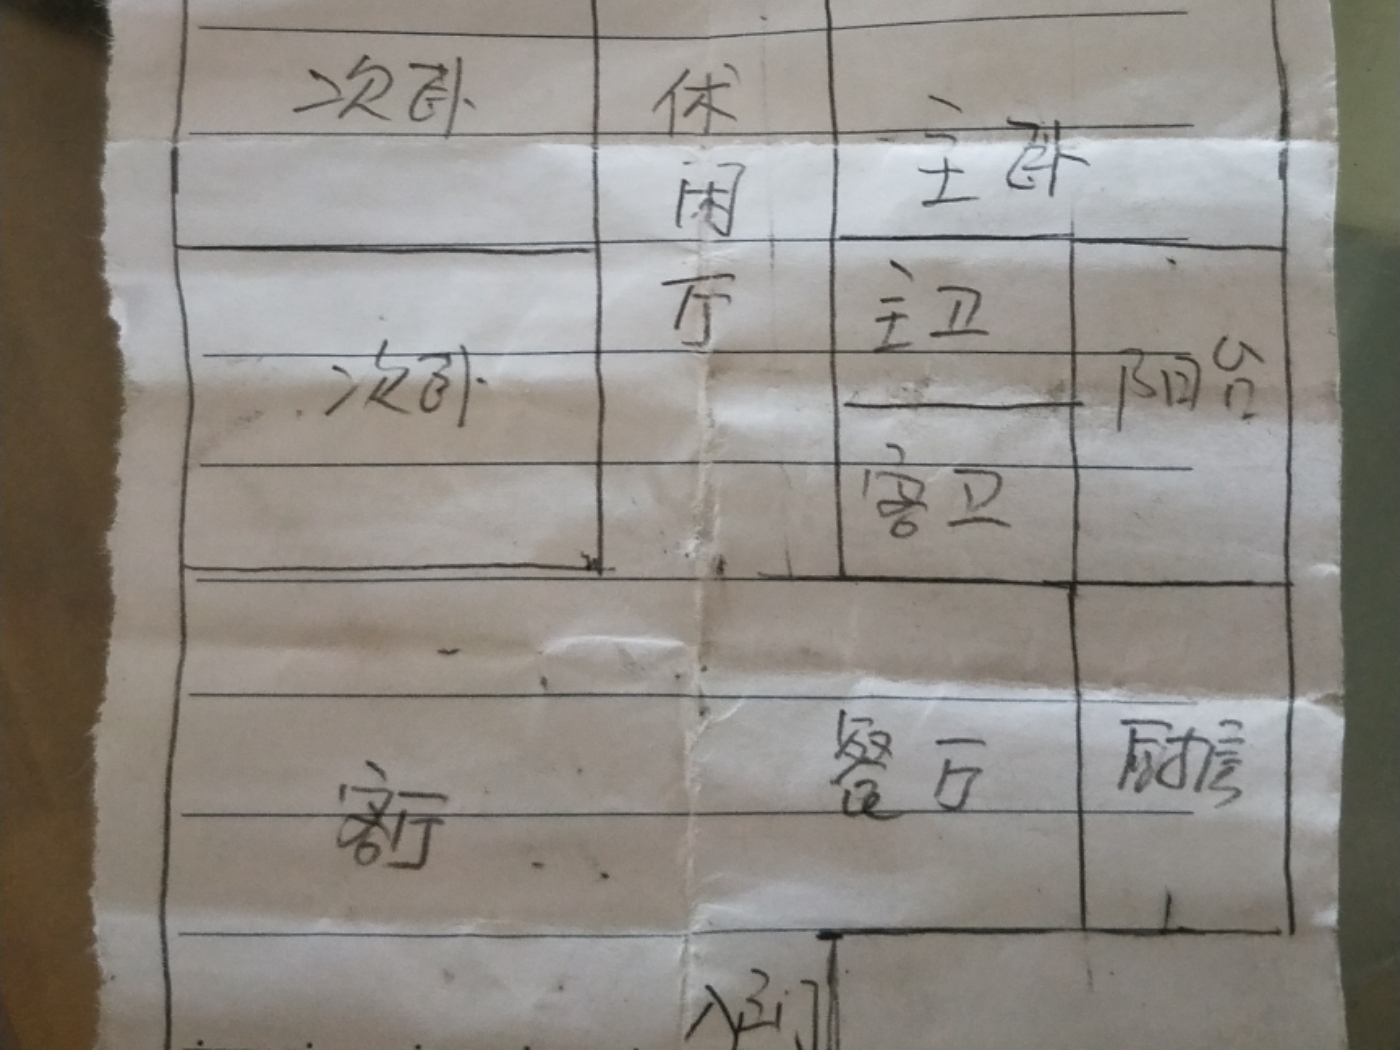 次卧
休闲厅
主卧
主卫
次卧
阳台
客卫
餐厅
厨房
客厅
入户门